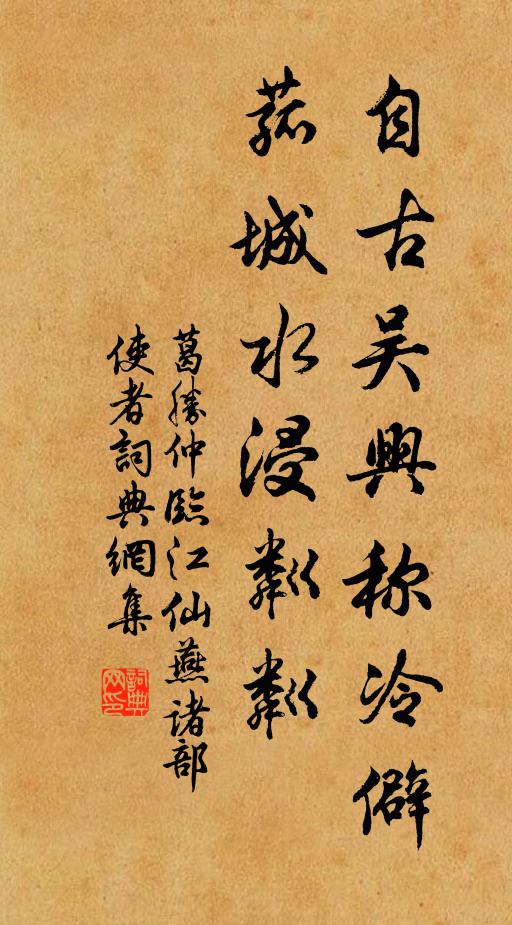 自古吴興称冷僻
菰城水浸粼粼
葛勝仲臨江仙燕诸部
使者詞典網集
詞典
网印